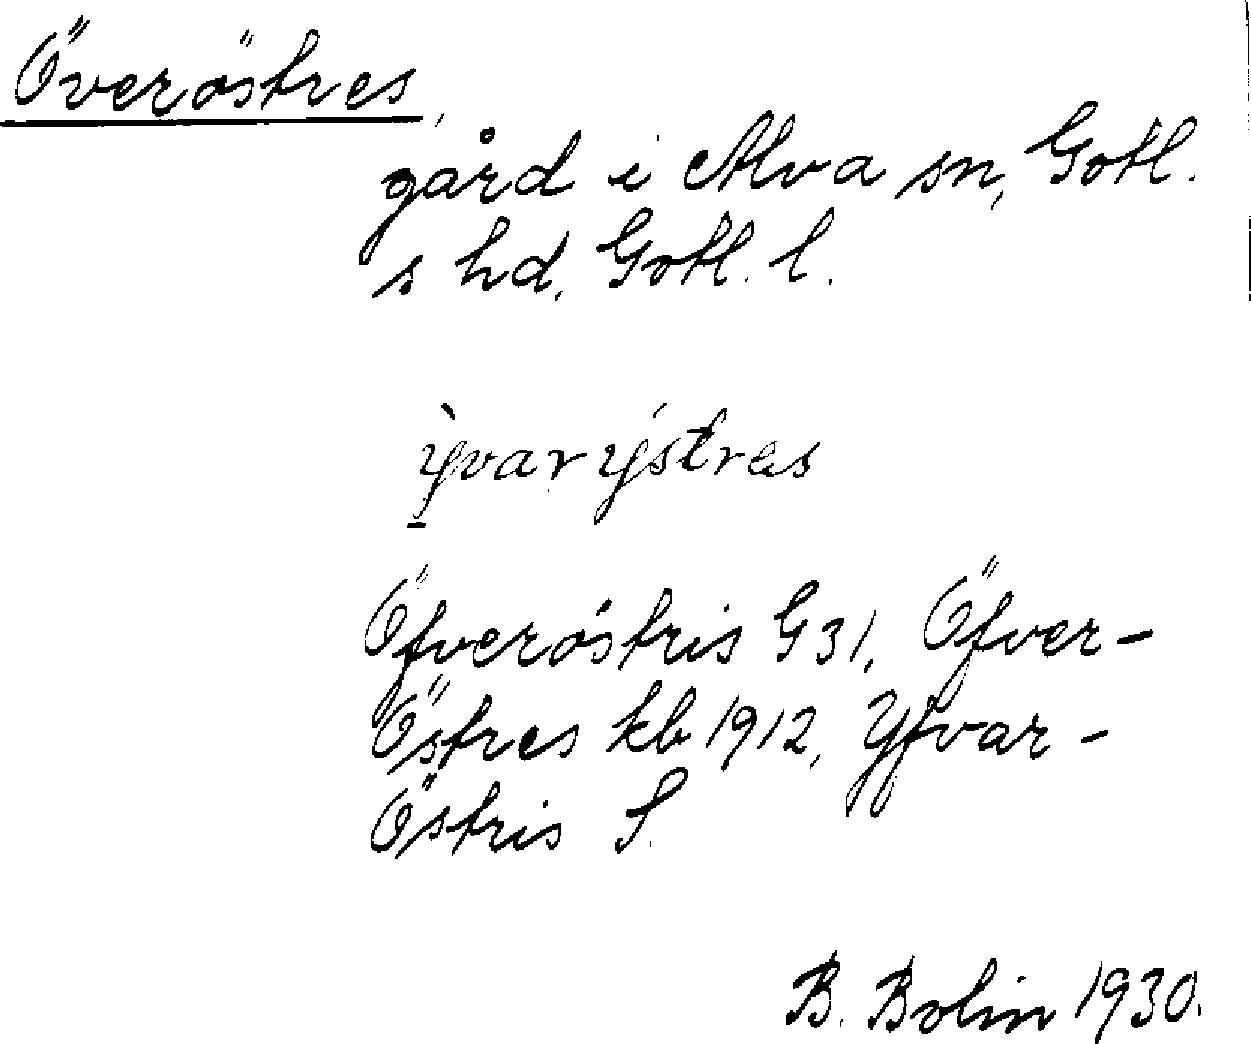 Överöstres,
gård i Alva sn, Gotl.
s hd, Gotl. l.
ỳ̠varýstres
Öfveröstris G31, Öfver-
Östres kb 1912, Yfvar-
Östris S.
B. Bolin 1930.